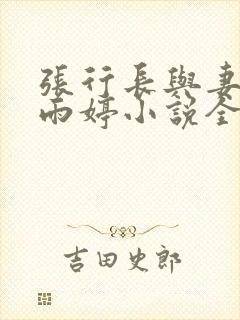 張行長與妻
雨婷小說全
吉田史郎